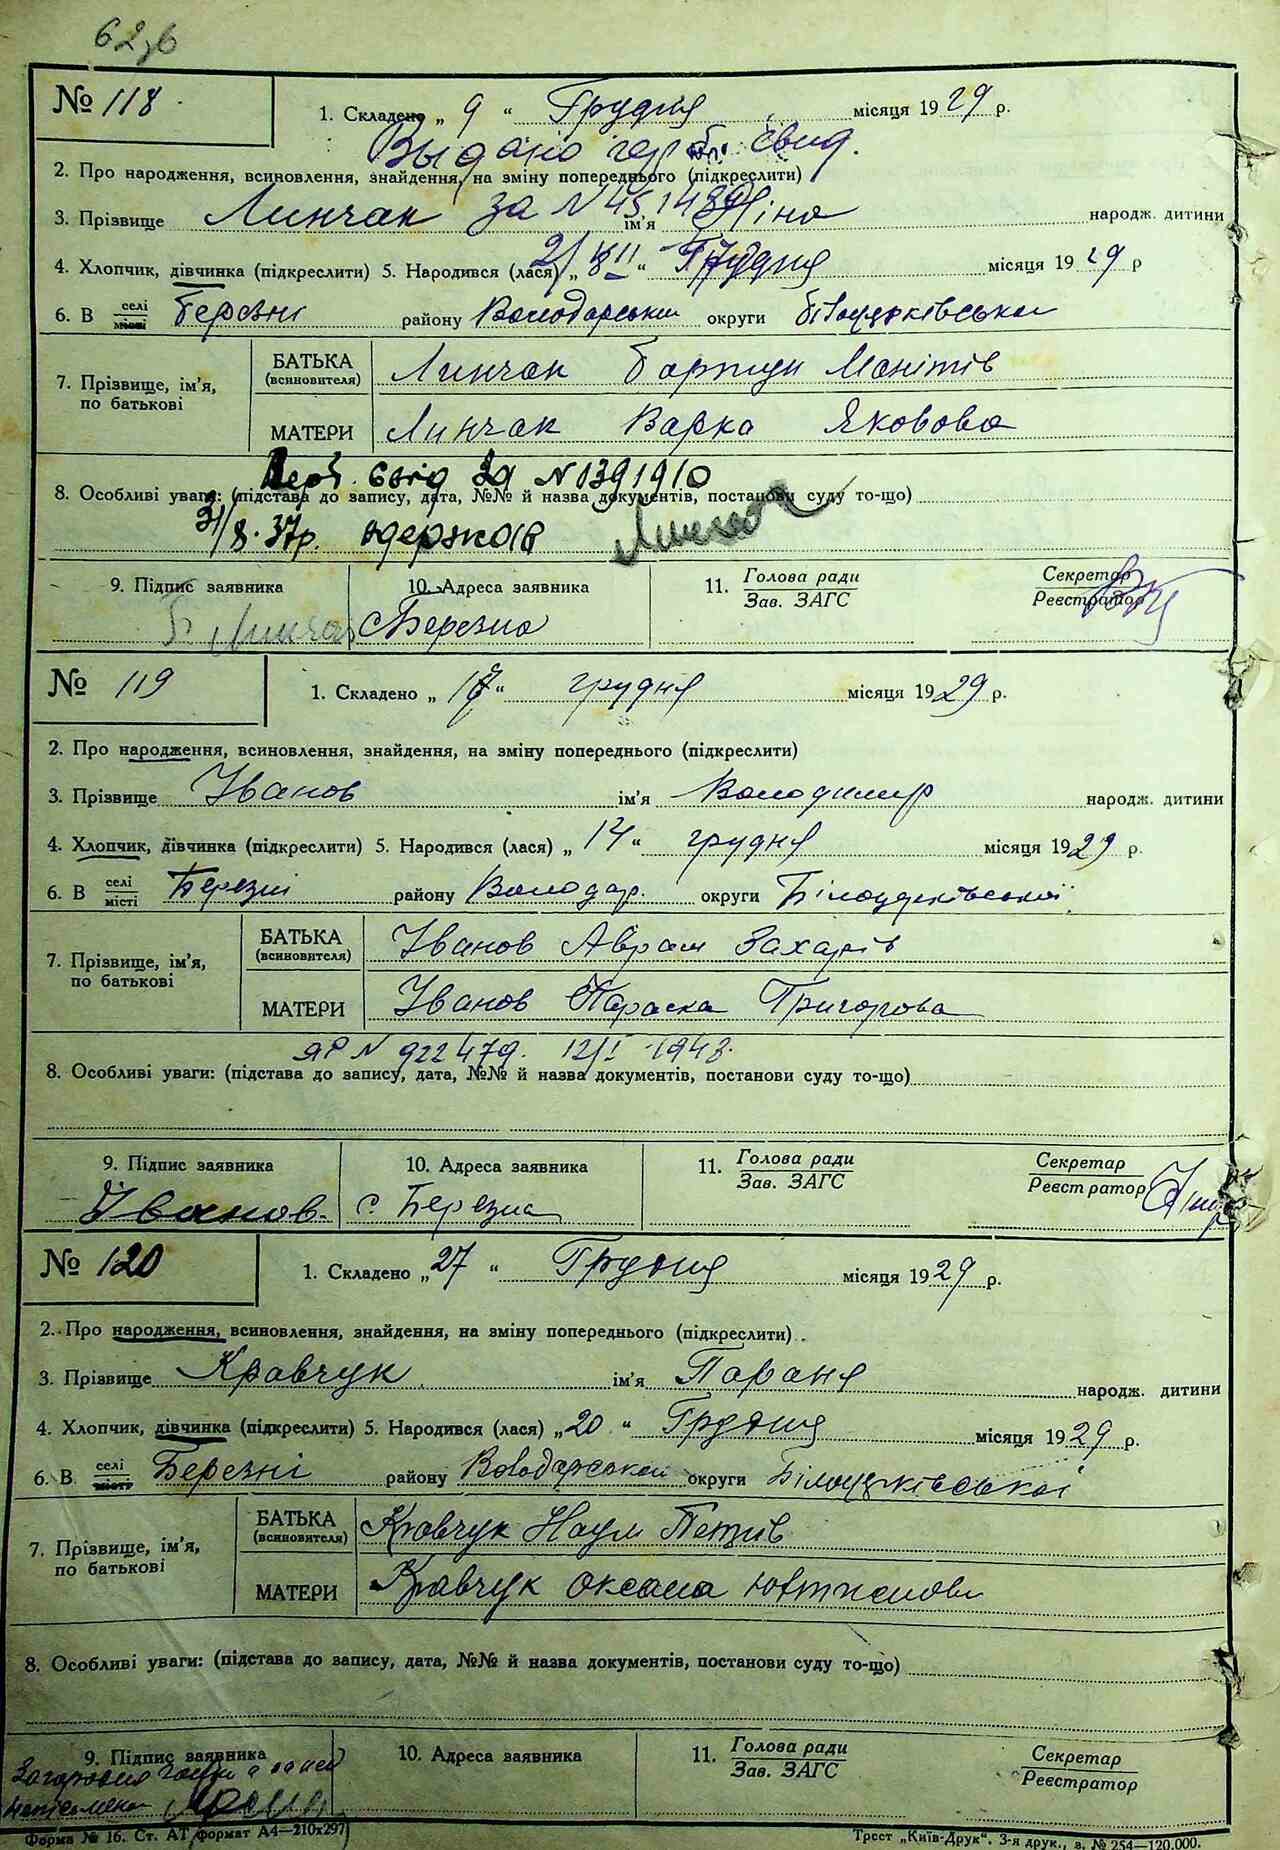 62зв
№ 118 1. Складено „ 9 “ Грудня місяця 1929 р.
Выдано герб. свид.
2. Про народження, всиновлення, знайдення, на зміну попереднього (підкреслити)
за N
3. Прізвище Линчак ім'я Ніна народж. дитини
4. Хлопчик, дівчинка (підкреслити) 5. Народився (лася) „ “ Грудня місяця 1929 р
6. В селі/місті Березні району Володарськ округи Білоцерківської
7. Прізвище, ім'я, по батькові
БАТЬКА (всиновителя) Линчак
МАТЕРИ Линчак Варка Яковова
Герб. свід за N 1391910
8. Особливі уваги: (підстава до запису, дата, №№ й назва документів, постанови суду то-що)
31/8. 37р. одержав Линчак
9. Підпис заявника 10. Адреса заявника 11. Голова ради / Зав. ЗАГС Секретар / Реєстратор
Б. Линчак с Березна
№ 119 1. Складено „ “ грудня місяця 1929 р.
2. Про народження, всиновлення, знайдення, на зміну попереднього (підкреслити)
3. Прізвище Іванов ім'я Володимир народж. дитини
4. Хлопчик, дівчинка (підкреслити) 5. Народився (лася) „ 14 “ грудня місяця 1929 р.
6. В селі/місті Березні району Володар. округи Білоцерківської
7. Прізвище, ім'я, по батькові
БАТЬКА (всиновителя) Іванов Аврам Захарів
МАТЕРИ Іванов Параска Григорова
ЯР N 922479. 12/I 1948.
8. Особливі уваги: (підстава до запису, дата, №№ й назва документів, постанови суду то-що)
9. Підпис заявника 10. Адреса заявника 11. Голова ради / Зав. ЗАГС Секретар / Реєстратор
Іванов. с Березна
№ 120 1. Складено „ 27 “ Грудня місяця 1929 р.
2. Про народження, всиновлення, знайдення, на зміну попереднього (підкреслити)
3. Прізвище Кравчук ім'я Параня народж. дитини
4. Хлопчик, дівчинка (підкреслити) 5. Народився (лася) „ 20 “ Грудня місяця 1929 р.
6. В селі/місті Березні району Володарської округи Білоцерківської
7. Прізвище, ім'я, по батькові
БАТЬКА (всиновителя) Кравчук Наум Петрів
МАТЕРИ Кравчук Оксана
8. Особливі уваги: (підстава до запису, дата, №№ й назва документів, постанови суду то-що)
9. Підпис заявника 10. Адреса заявника 11. Голова ради / Зав. ЗАГС Секретар / Реєстратор
Форма № 16. Ст. АТ формат А4—210x297) Трест „Київ-Друк“. 3-я друк., з. № 254—120.000.